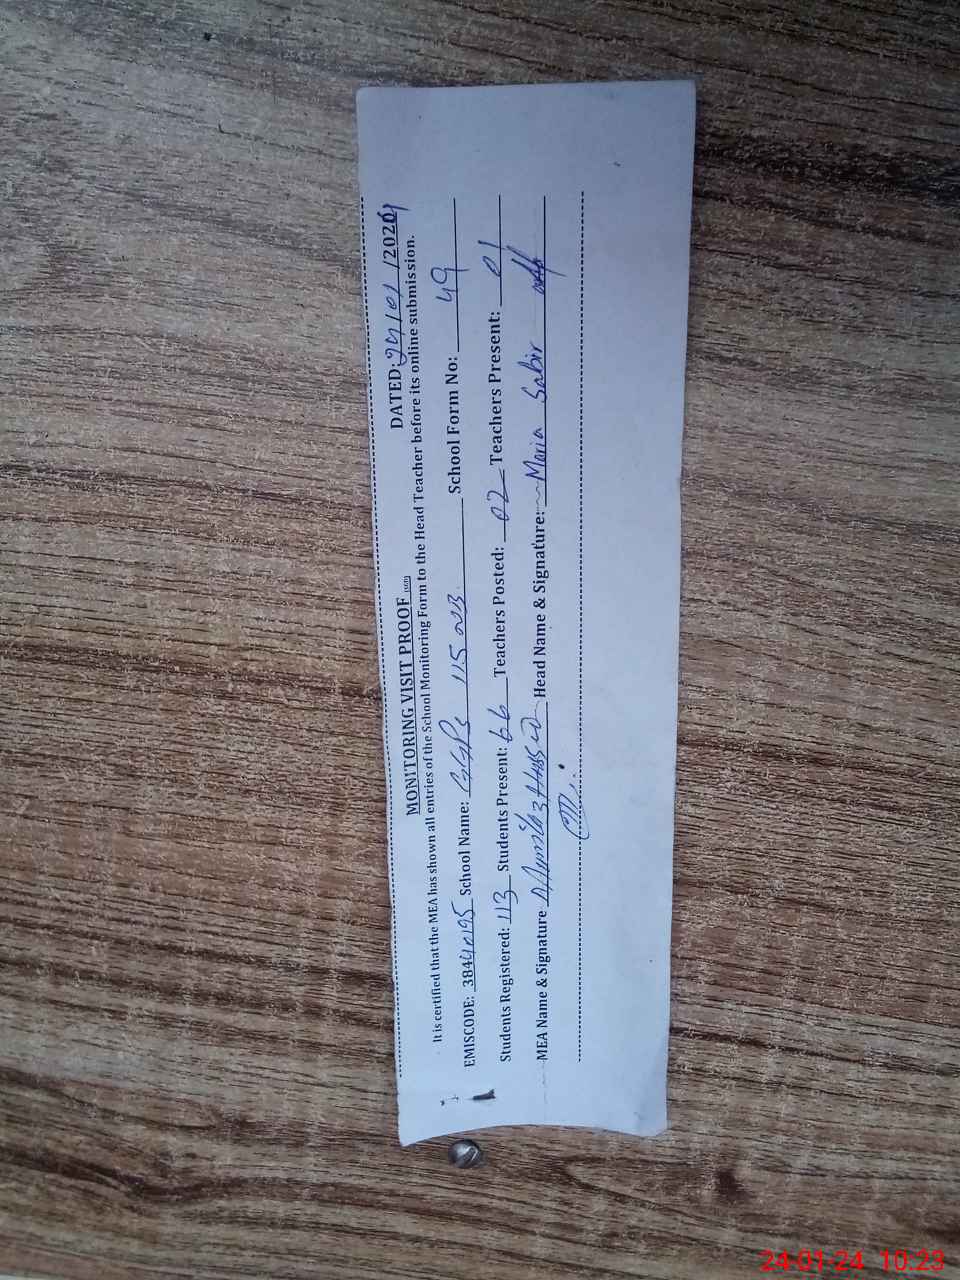 MONITORING VISIT PROOF DATED: 24/01/2024
It is certified that the MEA has shown all entries of the School Monitoring Form to the Head Teacher before its online submission.
EMISCODE: 38440195 School Name: GGPS 115 School Form No: 49
Students Registered: 113 Students Present: 66 Teachers Posted: 02 Teachers Present: 01
MEA Name & Signature Head Name & Signature: Maria Sabir
24-01-24 10:23